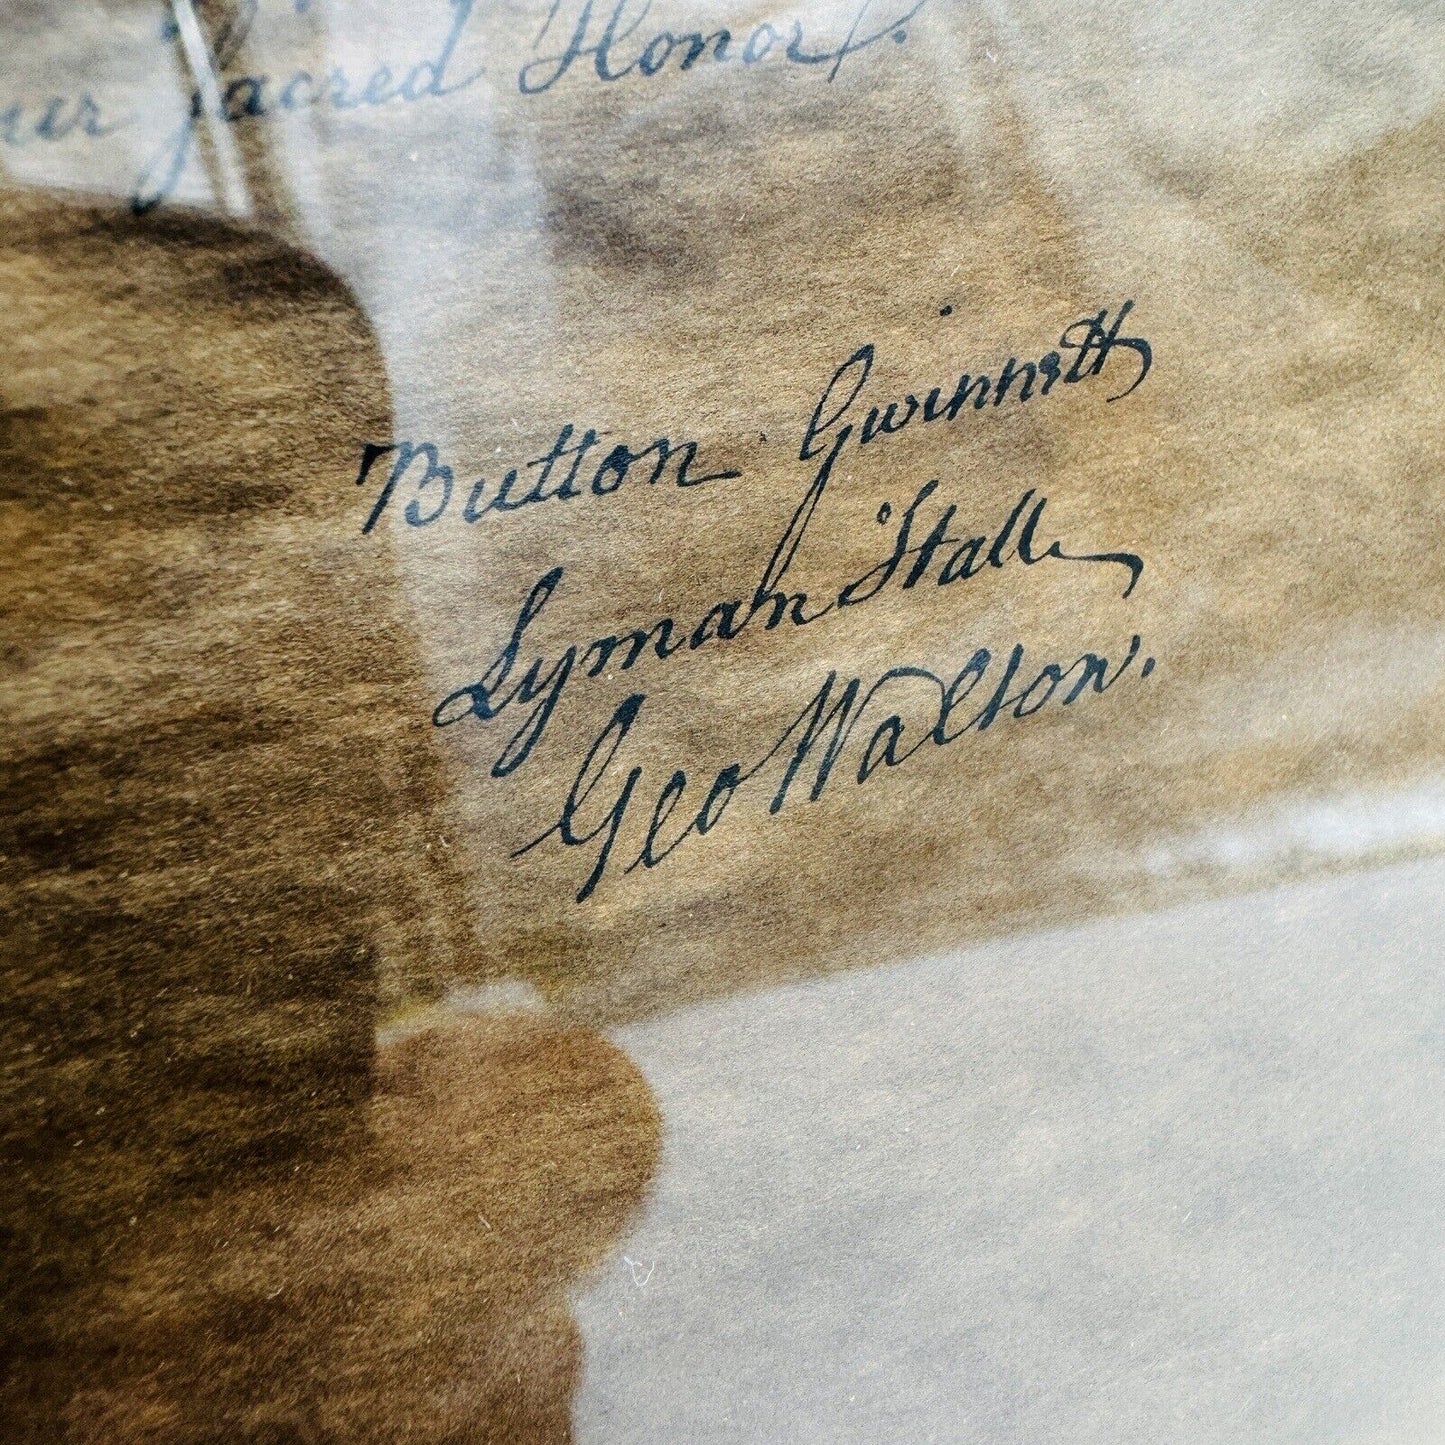 our sacred Honor.
Button Gwinnett
Lyman Hall
Geo Walton.